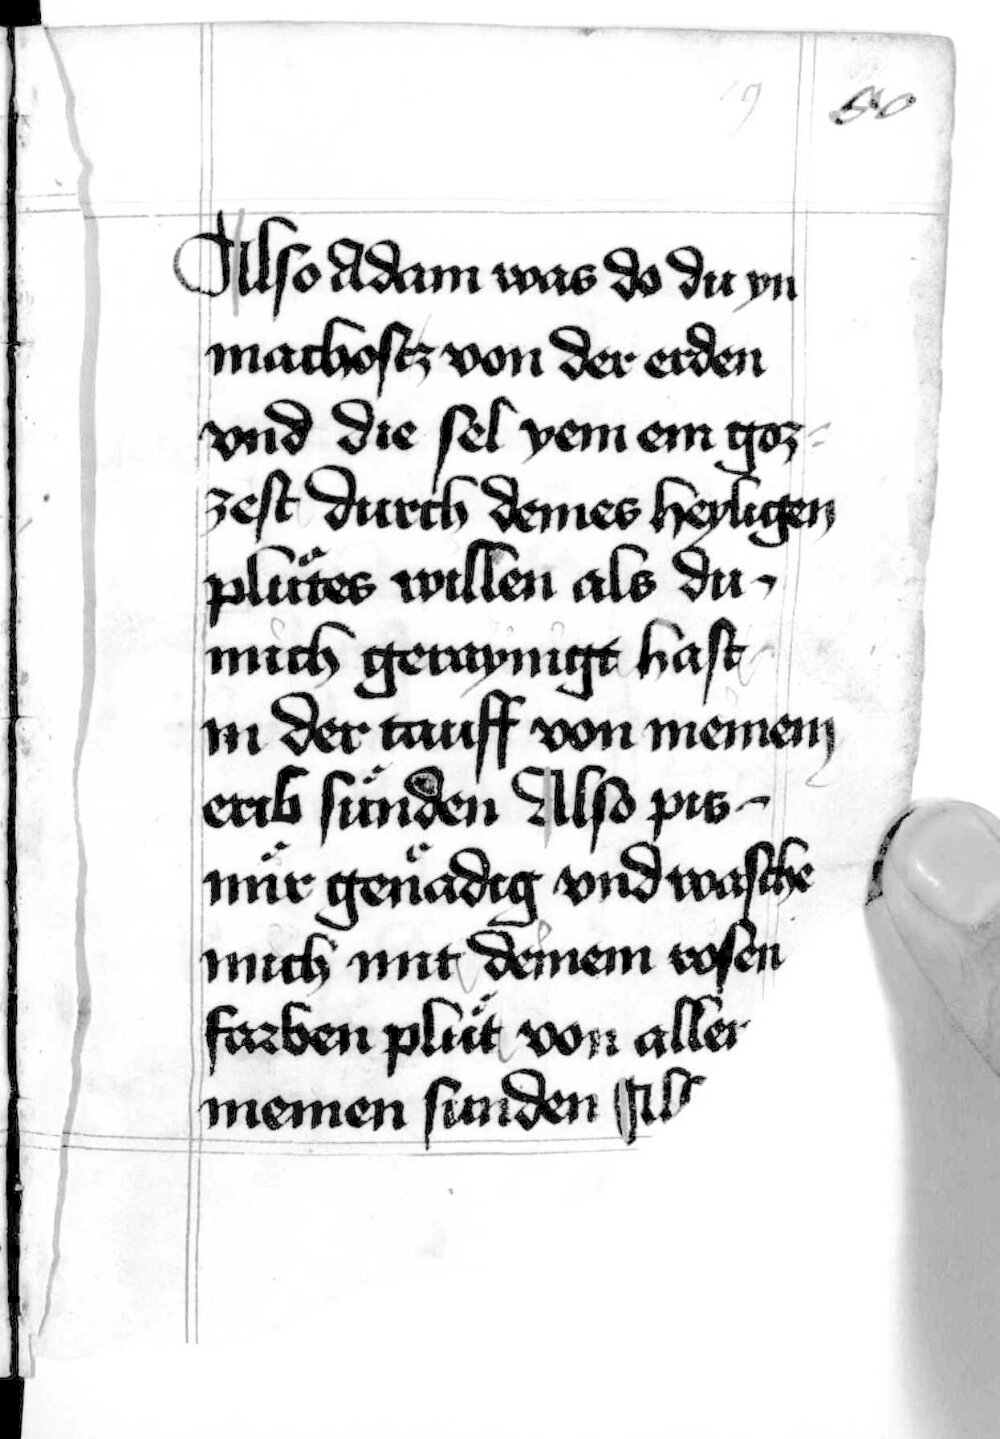 50
Also Adam was do du yn
machostz von der erden
vnd die sel yem ein goz-
zest durch deines heyligen
plu̎tes willen als du
mich geraynigt hast
in der tauff von meinem
erib sünden Also pis
mir̎ gena̎dig vnd wasche
mich mit deinem rosen
farben plu̎t von aller
meinen sunden